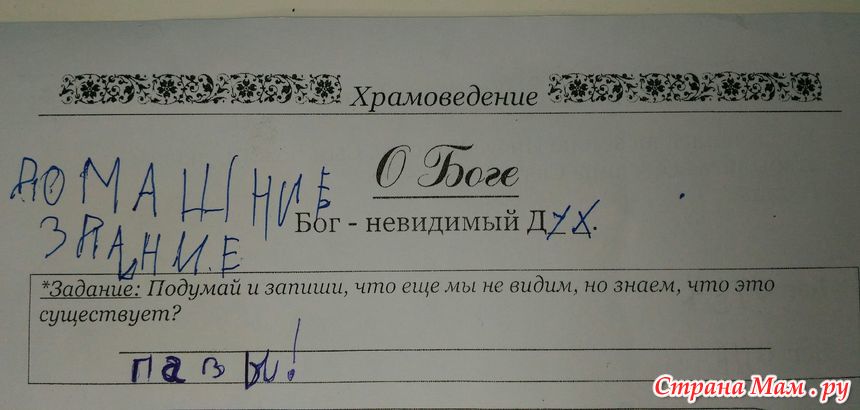 Храмоведение
О Боге
ДОМАШНИЕ
Бог - невидимый Дух.
ЗДАНИЕ
*Задание: Подумай и запиши, что еще мы не видим, но знаем, что это
существует?
пазы!
Страна Мам.ру